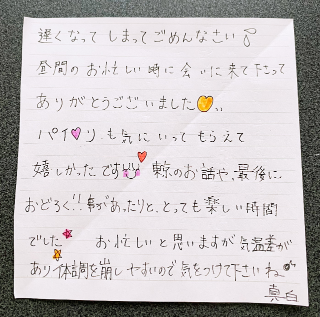 遅くなってしまってごめんなさい
昼間のお忙しい時に会いに来て下さって
ありがとうございました
パイ♡リ も気にいってもらえて
嬉しかったです 東京のお話や、最後に、
おどろく!!事があったりと、とっても楽しい時間
でした お忙しいと思いますが気温差が
あり体調を崩しやすいので気をつけて下さいね
真白